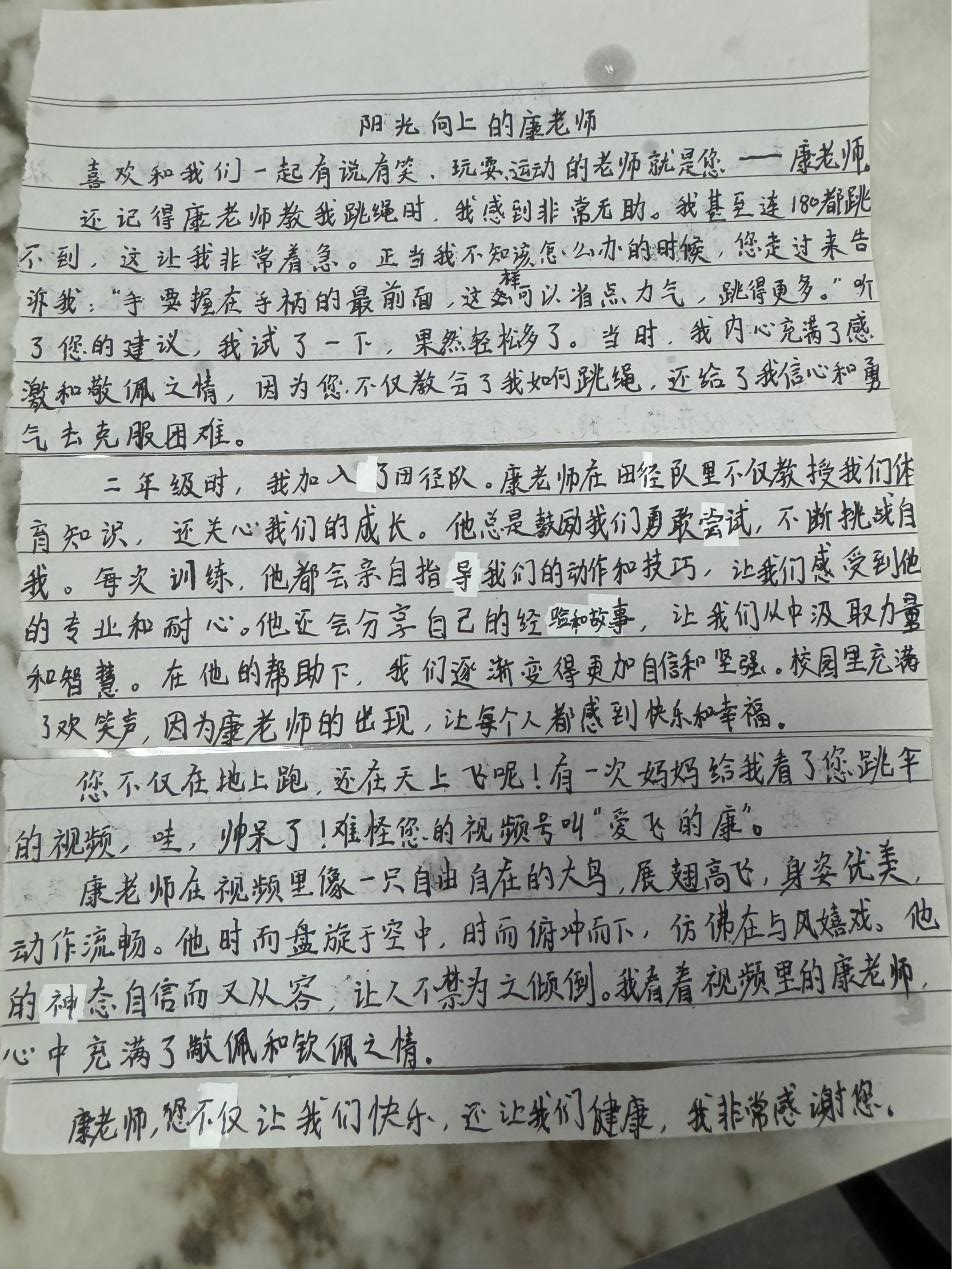 阳光向上的康老师
喜欢和我们一起有说有笑、玩耍、运动的老师就是您——康老师。
还记得康老师教我跳绳时，我感到非常无助。我甚至连180都跳
不到，这让我非常着急。正当我不知该怎么办的时候，您走过来告
诉我：“手要握在手柄的最前面，这样可以省点力气，跳得更多。”听
了您的建议，我试了一下，果然轻松多了。当时，我内心充满了感
激和敬佩之情，因为您不仅教会了我如何跳绳，还给了我信心和勇
气去克服困难。
二年级时，我加入了田径队。康老师在田径队里不仅教授我们体
育知识，还关心我们的成长。他总是鼓励我们勇敢尝试，不断挑战自
我。每次训练，他都会亲自指导我们的动作和技巧，让我们感受到他
的专业和耐心。他还会分享自己的经验和故事，让我们从中汲取力量
和智慧。在他的帮助下，我们逐渐变得更加自信和坚强。校园里充满
了欢笑声，因为康老师的出现，让每个人都感到快乐和幸福。
您不仅在地上跑，还在天上飞呢！有一次妈妈给我看了您跳伞
的视频，哇，帅呆了！难怪您的视频号叫“爱飞的康”。
康老师在视频里像一只自由自在的大鸟，展翅高飞，身姿优美，
动作流畅。他时而盘旋于空中，时而俯冲而下，仿佛在与风嬉戏。他
的神态自信而又从容，让人不禁为之倾倒。我看着视频里的康老师，
心中充满了敬佩和钦佩之情。
康老师，您不仅让我们快乐，还让我们健康，我非常感谢您。